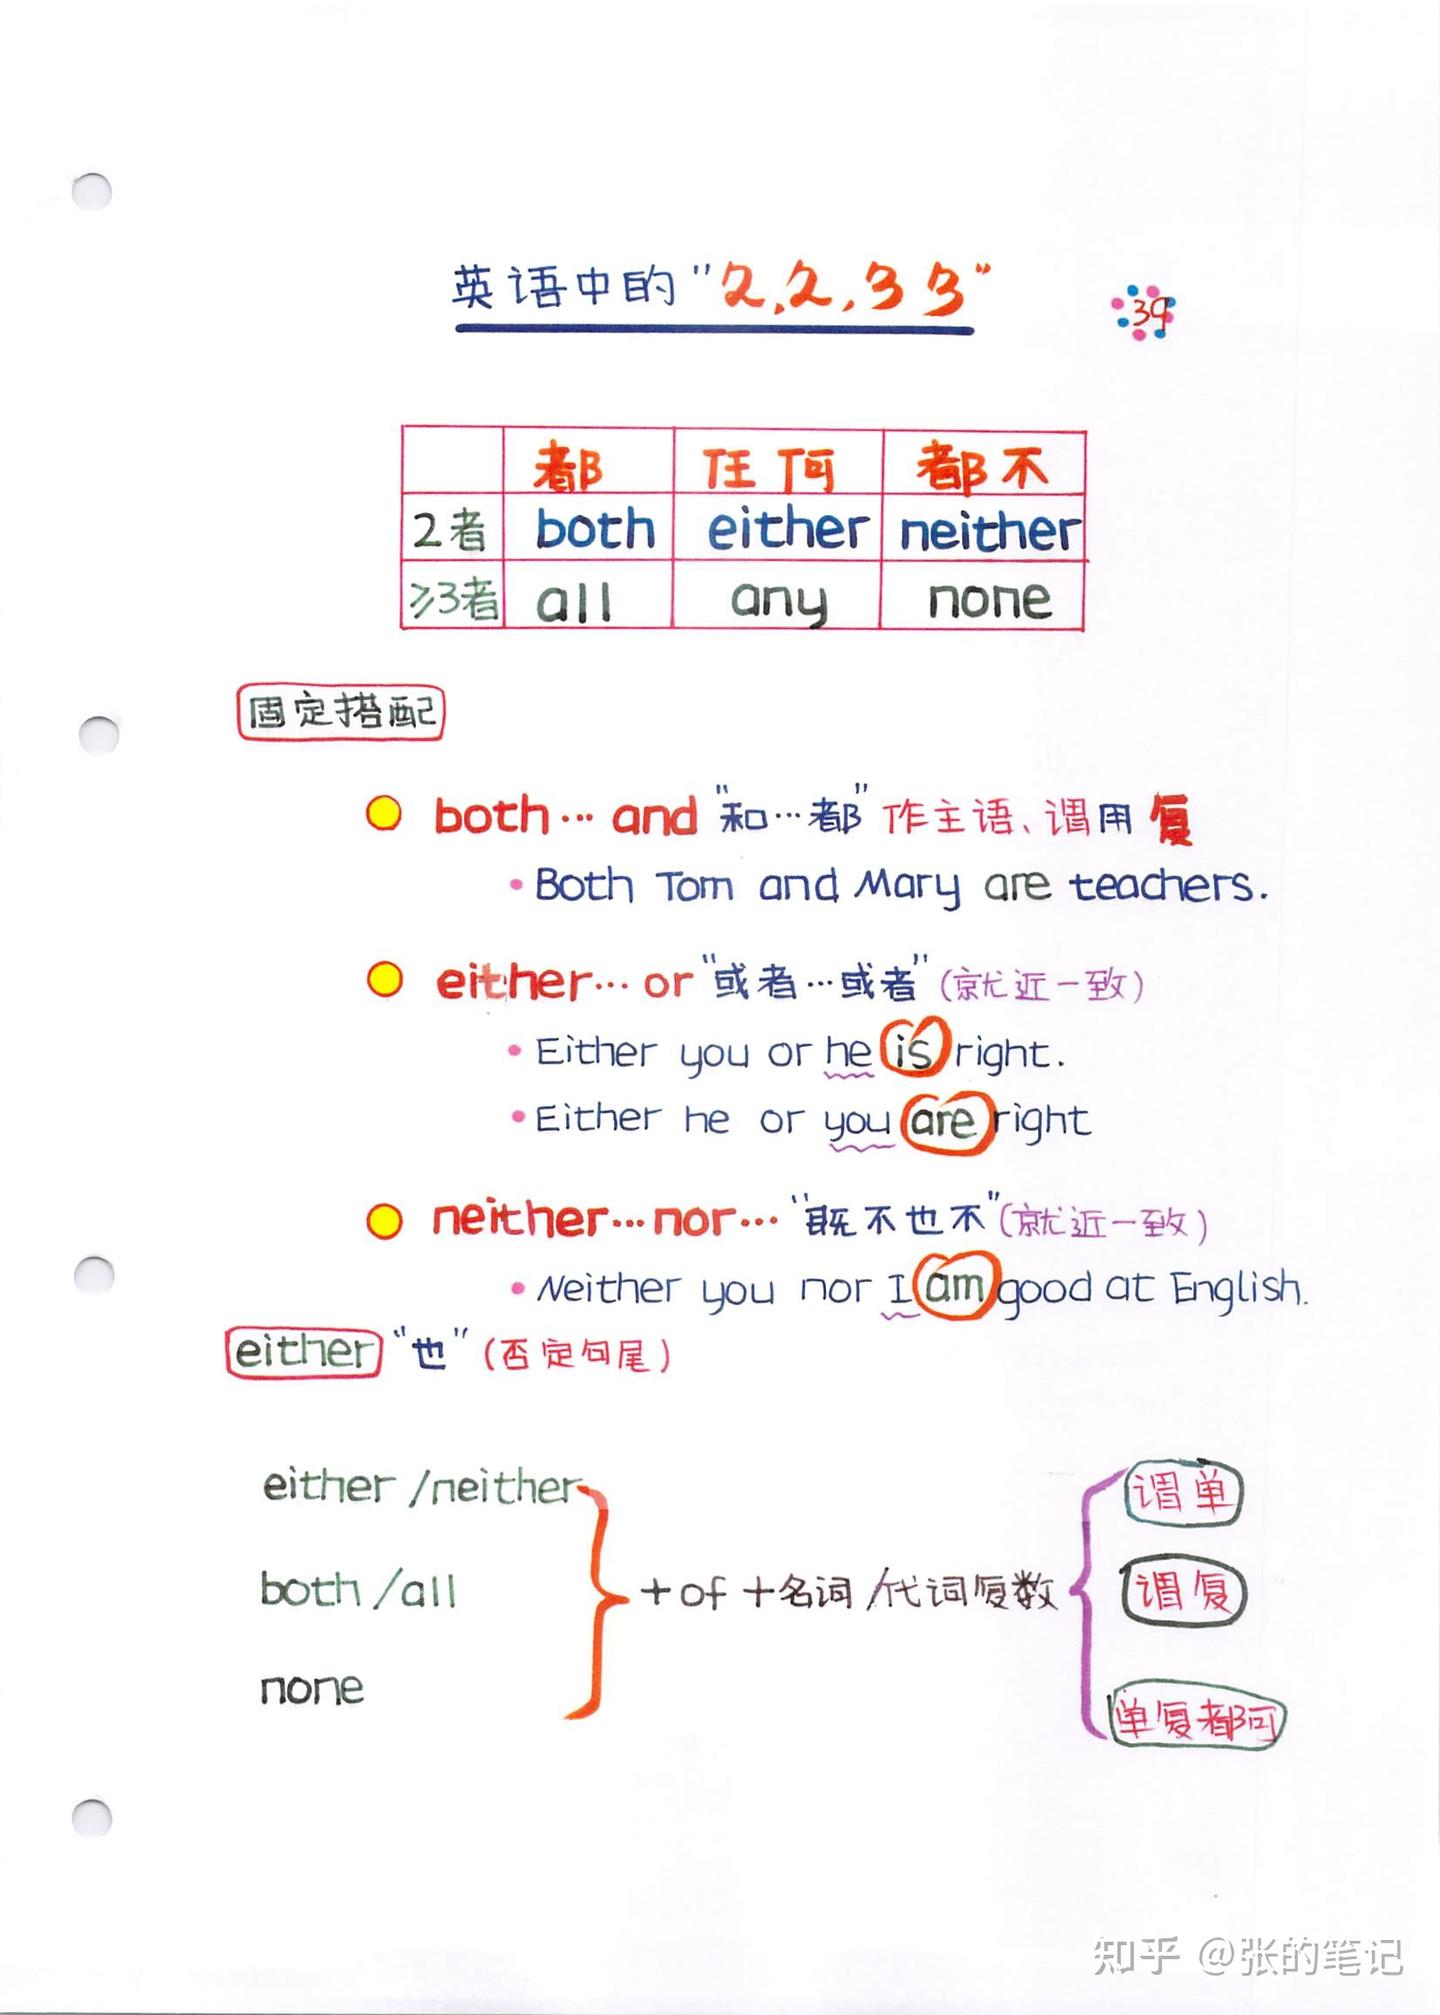 英语中的"2,2,33"
39
都 任何 都不
2者 both either neither
≥3者 all any none
固定搭配
both…and "和…都" 作主语、谓用复
• Both Tom and Mary are teachers.
either…or "或者…或者" (就近一致)
• Either you or he is right.
• Either he or you are right
neither…nor… "既不也不" (就近一致)
• Neither you nor I am good at English.
either "也" (否定句尾)
either /neither 谓单
both /all +of +名词/代词复数 谓复
none 单复都可
知乎 @张的笔记